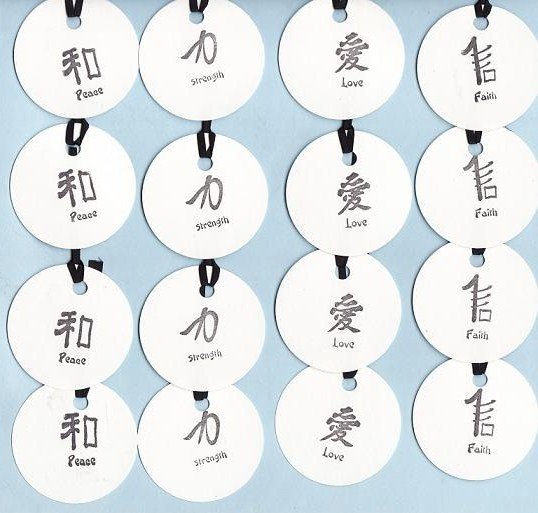 和
Peace
力
strength
愛
Love
信
Faith
和
Peace
力
strength
愛
Love
信
Faith
和
Peace
力
strength
愛
Love
信
Faith
和
Peace
力
strength
愛
Love
信
Faith